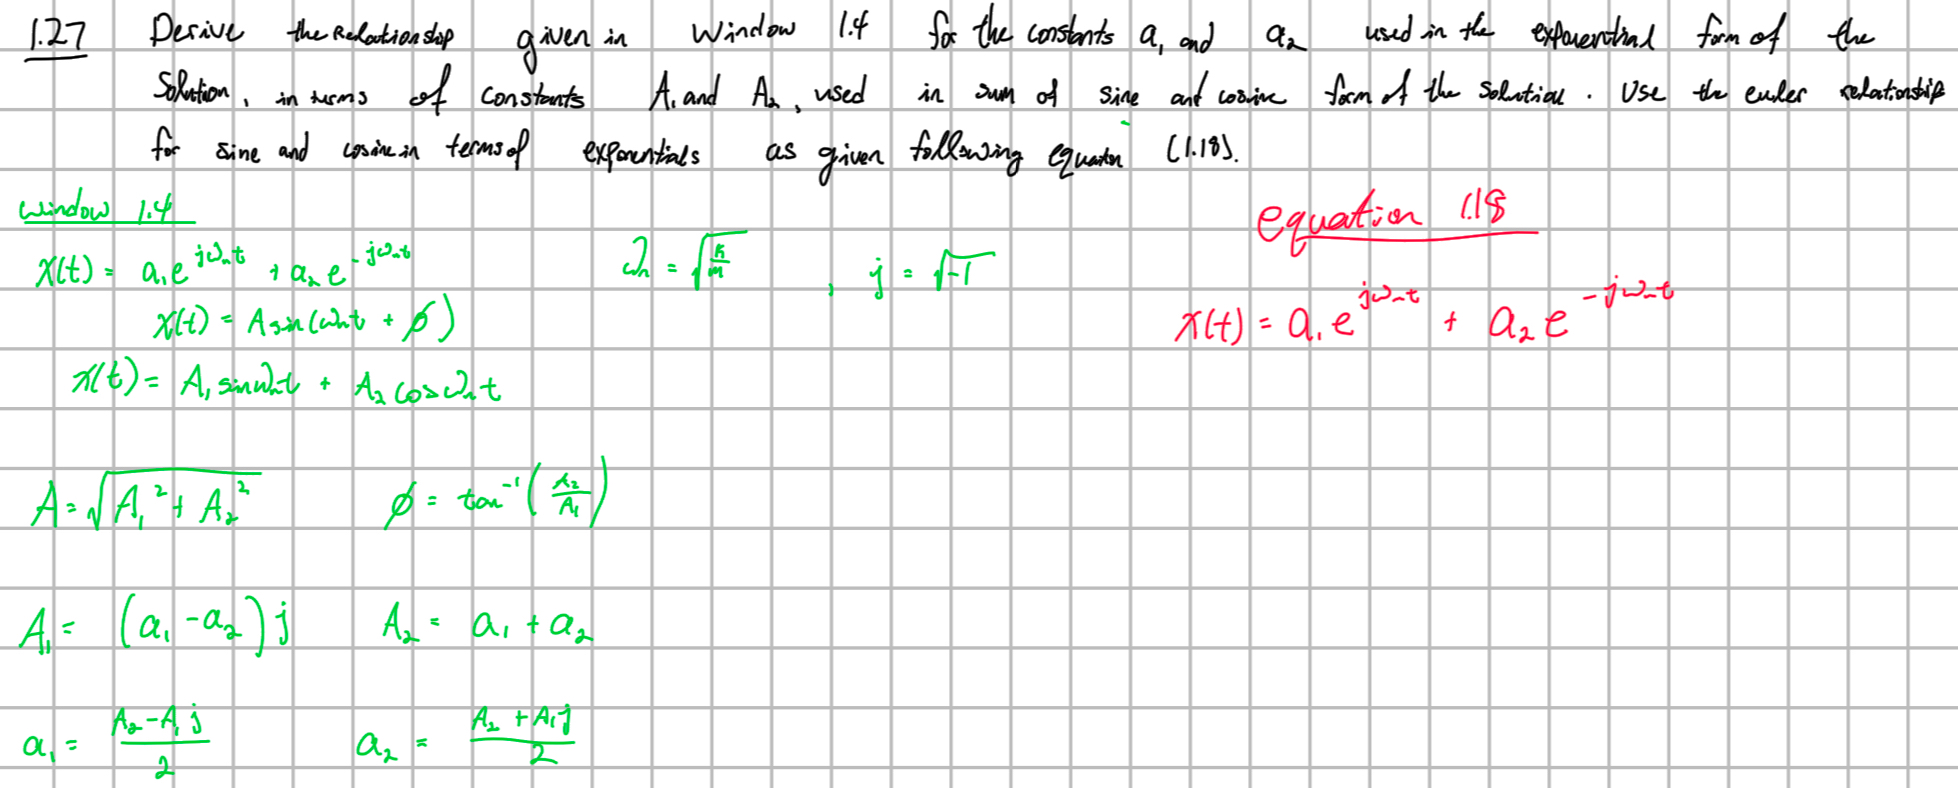 1.27 Derive the Relationship given in Window 1.4 for the constants a₁ and a₂ used in the exponential form of the
Solution, in terms of constants A₁ and A₂, used in sum of sine and cosine form of the solution. Use the euler relationship
for sine and cosine in terms of exponentials as given following equation (1.18).
window 1.4
x(t) = a₁e^{jωₙt} + a₂e^{-jωₙt}
ωₙ = √(k/m) , j = √-1
x(t) = A sin(ωₙt + φ)
x(t) = A₁ sinωₙt + A₂ cosωₙt
A = √(A₁² + A₂²) φ = tan⁻¹(A₂/A₁)
A₁ = (a₁ - a₂)j A₂ = a₁ + a₂
a₁ = (A₂ - A₁j)/2 a₂ = (A₂ + A₁j)/2
equation 1.18
x(t) = a₁e^{jωₙt} + a₂e^{-jωₙt}